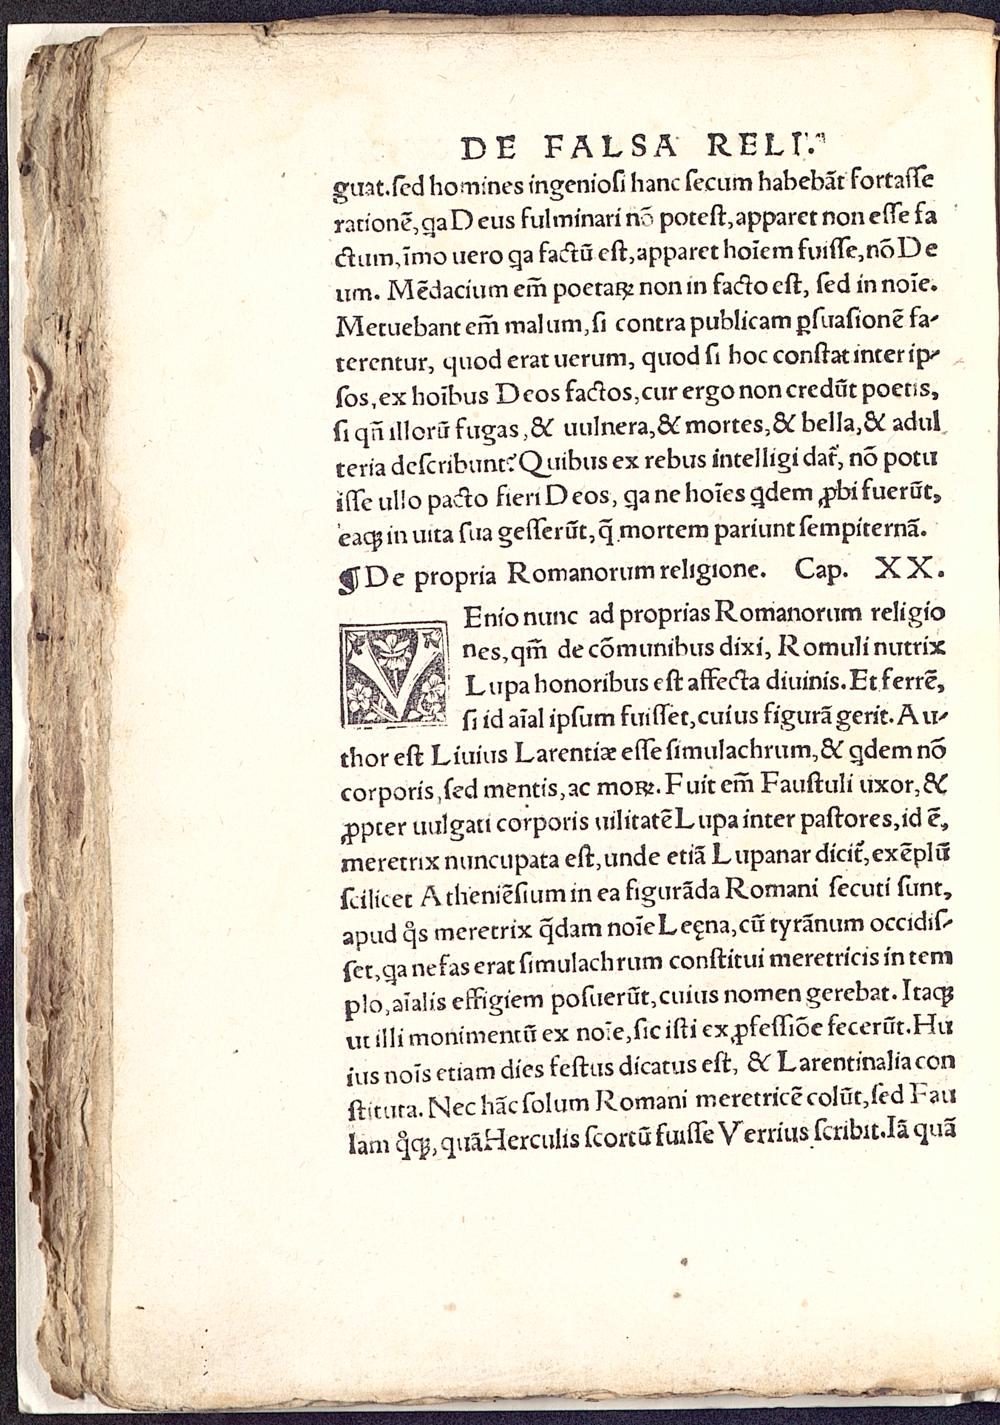 DE FALSA RELI.
guat. sed homines ingeniosi hanc secum habebāt fortasse
rationē, qa Deus fulminari nō potest, apparet non esse fa
ctum, īmo uero qa factū est, apparet hoīem fuisse, nō De
um. Mēdacium em̄ poetaꝝ non in facto est, sed in noīe.
Metuebant em̄ malum, si contra publicam ꝑsuasionē fa-
terentur, quod erat uerum, quod si hoc constat inter ip-
sos, ex hoībus Deos factos, cur ergo non credūt poetis,
si qn̄ illorū fugas, & uulnera, & mortes, & bella, & adul
teria describunt? Quibus ex rebus intelligi dat̄, nō potu
isse ullo pacto fieri Deos, qa ne hoīes qdem ꝓbi fuerūt,
eaqꝫ in uita sua gesserūt, q̄ mortem pariunt sempiternā.
¶ De propria Romanorum religione. Cap. XX.
VEnio nunc ad proprias Romanorum religio
nes, qm̄ de cōmunibus dixi, Romuli nutrix
Lupa honoribus est affecta diuinis. Et ferrē,
si id aīal ipsum fuisset, cuius figurā gerit. Au-
thor est Liuius Larentiæ esse simulachrum, & qdem nō
corporis, sed mentis, ac moꝝ. Fuit em̄ Faustuli uxor, &
ꝓpter uulgati corporis uilitatē Lupa inter pastores, id ē,
meretrix nuncupata est, unde etiā Lupanar dicit̄, exēplū
scilicet Atheniēsium in ea figurāda Romani secuti sunt,
apud qͦs meretrix q̄dam noīe Leęna, cū tyrānum occidis-
set, qa nefas erat simulachrum constitui meretricis in tem
plo, aīalis effigiem posuerūt, cuius nomen gerebat. Itaqꝫ
ut illi monimentū ex noīe, sic isti ex ꝓfessiōe fecerūt. Hu
ius noīs etiam dies festus dicatus est, & Larentinalia con
stituta. Nec hāc solum Romani meretricē colūt, sed Fau
lam qͦqꝫ, quā Herculis scortū fuisse Verrius scribit. Iā quā